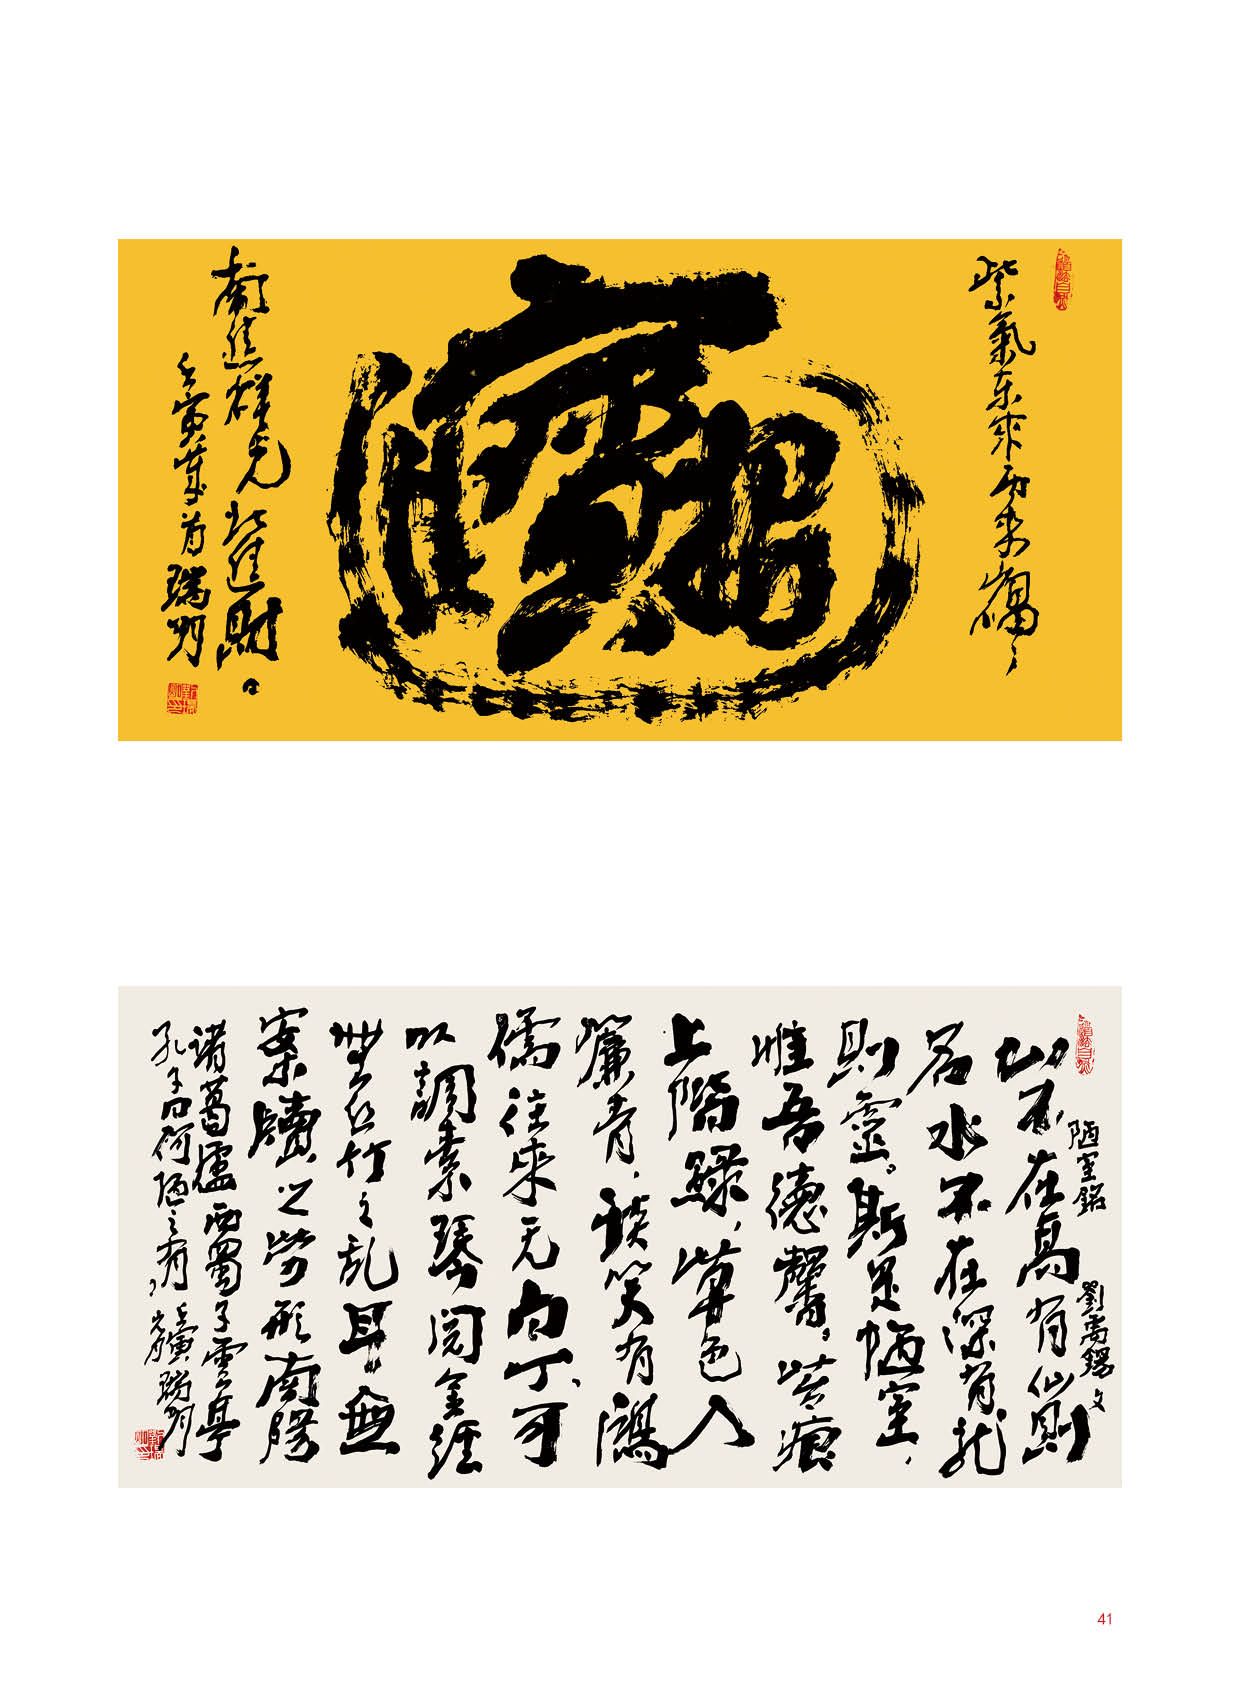 紫氣东來西來福
南進祥光北進財
山不在高有仙則
名水不在深有龙
則靈。斯是陋室，
惟吾德馨，苔痕
上階綠，草色入
簾青，談笑有鴻
儒往來无白丁、可
以調素琴閱金經
無丝竹之乱耳無
案牘之勞形南陽
諸葛廬西蜀子雲亭
孔子曰何陋之有，壬寅 瑞明
陋室銘 劉禹錫文
41